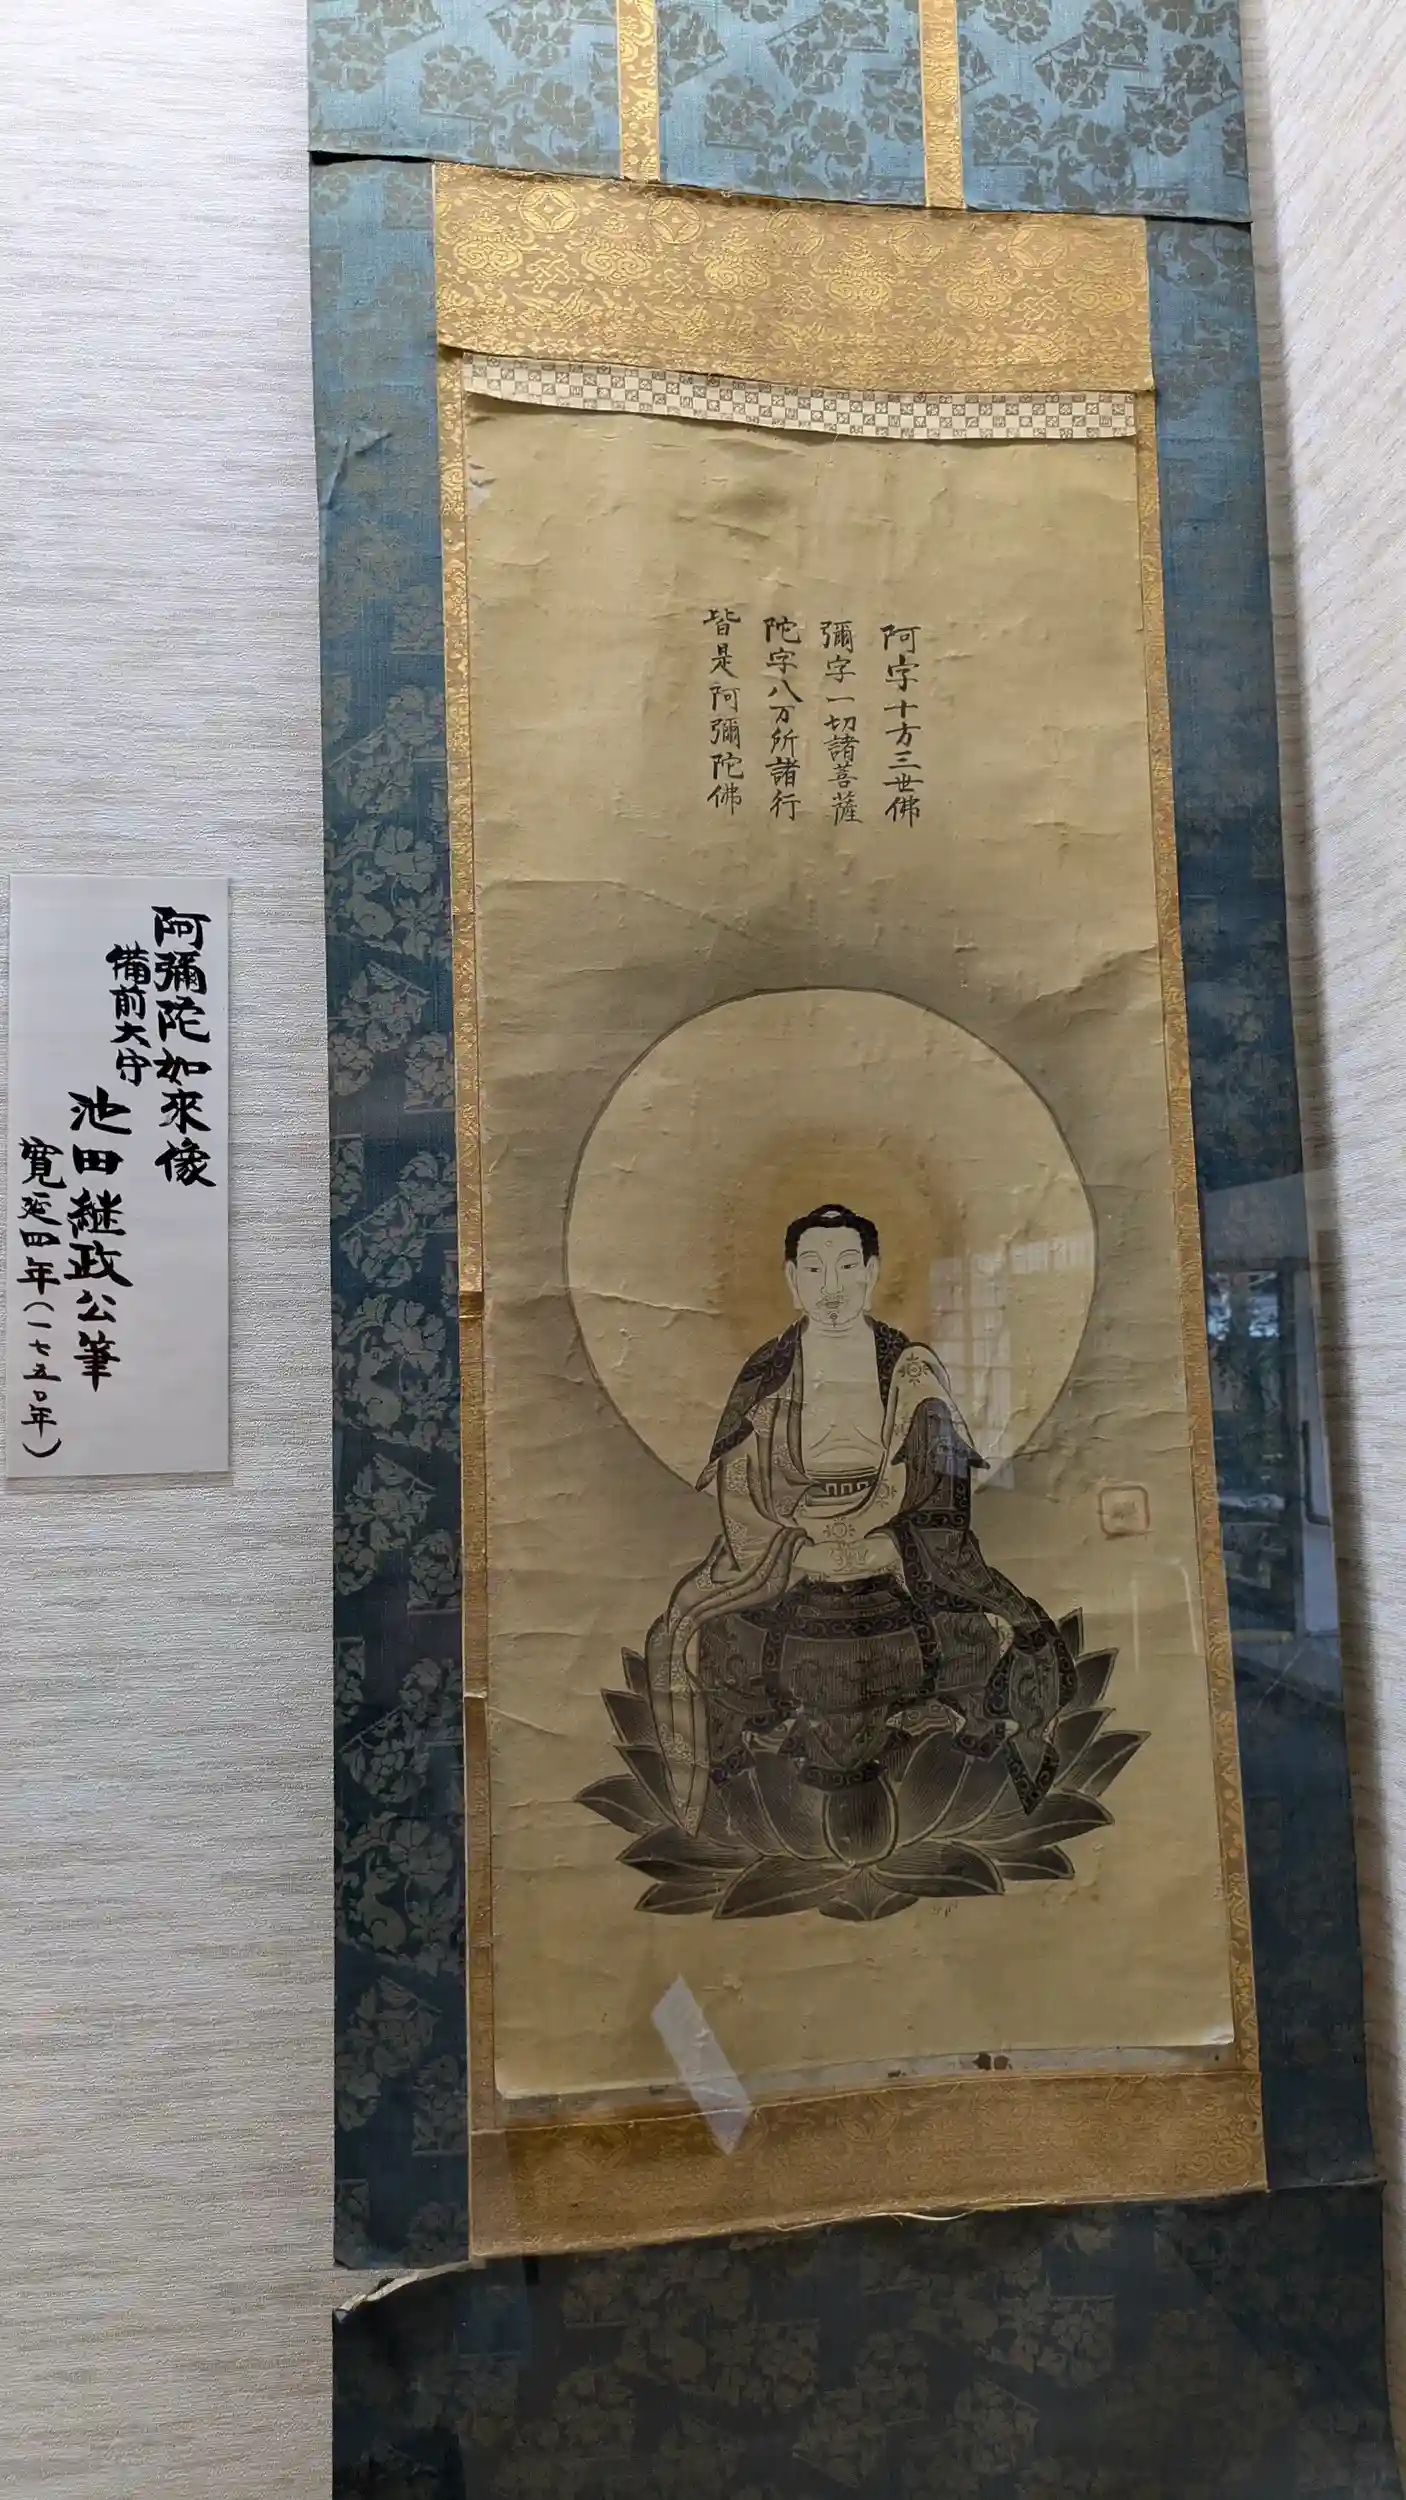 阿字十方三世佛
彌字一切諸菩薩
陀字八万所諸行
皆是阿彌陀佛
阿彌陀如來像
備前大守
池田継政公筆
寛延四年(一七五〇年)